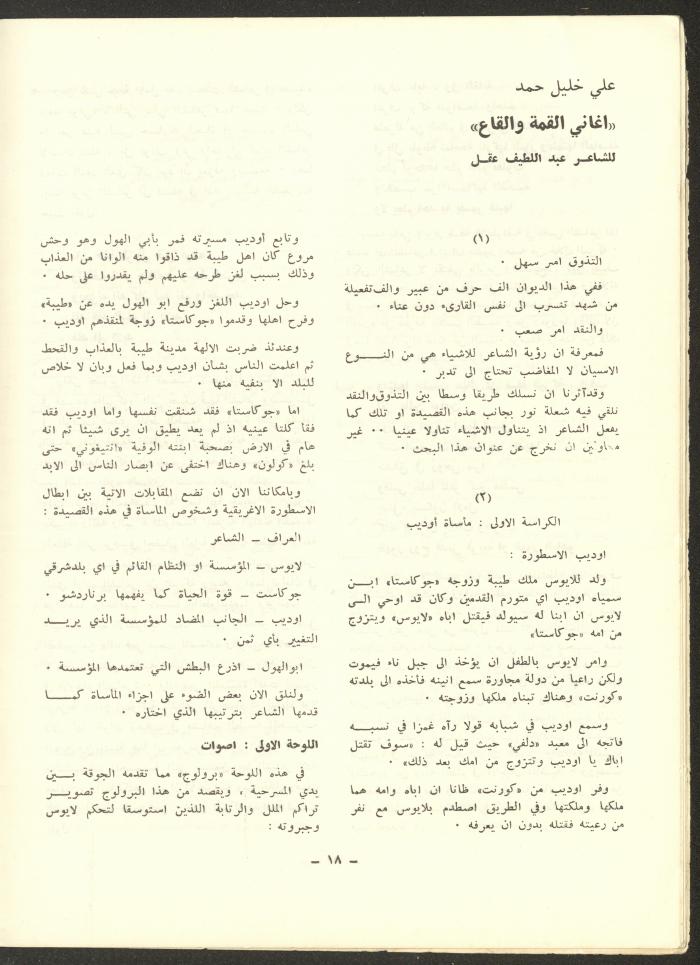 علي خليل حمد
«اغاني القمة والقاع»
للشاعر عبد اللطيف عقل
(١)
التذوق امر سهل .
ففي هذا الديوان الف حرف من عبير والف تفعيلة
من شهد تتسرب الى نفس القارىء دون عناء .
والنقد امر صعب .
فمعرفة ان رؤية الشاعر للاشياء هي من النوع
الاسيان لا المغاضب تحتاج الى تدبر .
وقد آثرنا ان نسلك طريقا وسطا بين التذوق والنقد
نلقي فيه شعلة نور بجانب هذه القصيدة او تلك كما
يفعل الشاعر اذ يتناول الاشياء تناولا عينيا ٠٠ غير
ان نخرج عن عنوان هذا البحث .
(٢)
الكراسة الاولى : مأساة أوديب
اوديب الاسطورة :
ولد للايوس ملك طيبة وزوجه «جوكاستا» ابن
سمياه اوديب اي متورم القدمين وكان قد اوحي الى
لايوس ان ابنا له سيولد فيقتل اباه «لايوس» ويتزوج
من امه «جوكاستا»
وامر لايوس بالطفل ان يؤخذ الى جبل ناء فيموت
ولكن راعيا من دولة مجاورة سمع انينه فأخذه الى بلدته
«كورنت» وهناك تبناه ملكها وزوجته .
وسمع اوديب في شبابه قولا رآه غمزا في نسبه
فاتجه الى معبد «دلفي» حيث قيل له : «سوف تقتل
اباك يا اوديب وتتزوج من امك بعد ذلك» .
وفر اوديب من «كورنت» ظانا ان اباه وامه هما
ملكها وملكتها وفي الطريق اصطدم بلايوس مع نفر
من رعيته فقتله بدون ان يعرفه .
وتابع أوديب مسيرته فمر بأبي الهول وهو وحش
مروع كان اهل طيبة قد ذاقوا منه الوانا من العذاب
وذلك بسبب لغز طرحه عليهم ولم يقدروا على حله .
وحل اوديب اللغز ورفع ابو الهول يده عن «طيبة»
وفرح اهلها وقدموا «جوكاستا» زوجة لمنقذهم اوديب .
وعندئذ ضربت الالهة مدينة طيبة بالعذاب والقحط
ثم اعلمت الناس بشان اوديب وبما فعل وبان لا خلاص
للبلد الا بنفيه منها .
اما «جوكاستا» فقد شنقت نفسها واما اوديب فقد
فقأ كلتا عينيه اذ لم يعد يطيق ان يرى شيئا ثم انه
هام في الارض بصحبة ابنته الوفية «انتيغوني» حتى
بلغ «كولون» وهناك اختفى عن ابصار الناس الى الابد
وبامكاننا الان ان نضع المقابلات الاتية بين ابطال
الاسطورة الاغريقية وشخوص المأساة في هذه القصيدة :
العراف – الشاعر
لايوس – المؤسسة او النظام القائم في اي بلد شرقي
جوكاست – قوة الحياة كما يفهمها برناردشو .
اوديب – الجانب المضاد للمؤسسة الذي يريد
التغيير بأي ثمن .
ابوالهول – اذرع البطش التي تعتمدها المؤسسة .
ولنلق الان بعض الضوء على اجزاء المأساة كما
قدمها الشاعر بترتيبها الذي اختاره .
اللوحة الاولى : اصوات
في هذه اللوحة «برولوج» مما تقدمه الجوقة بين
يدي المسرحية ، ويقصد من هذا البرولوج تصوير
تراكم الملل والرتابة اللذين استوسقا لتحكم لايوس
وجبروته :
– ١٨ –